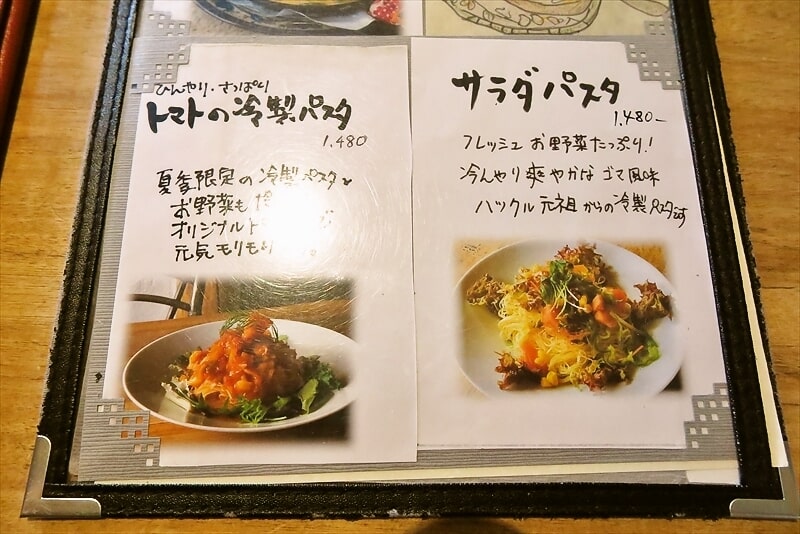 ひんやり・さっぱり
トマトの冷製パスタ
1,480
夏季限定の冷製パスタと
お野菜も
オリジナルト
元気モリモリ
サラダパスタ
1,480-
フレッシュお野菜たっぷり!
冷んやり爽やかなゴマ風味
ハックル元祖からの冷製パスタです